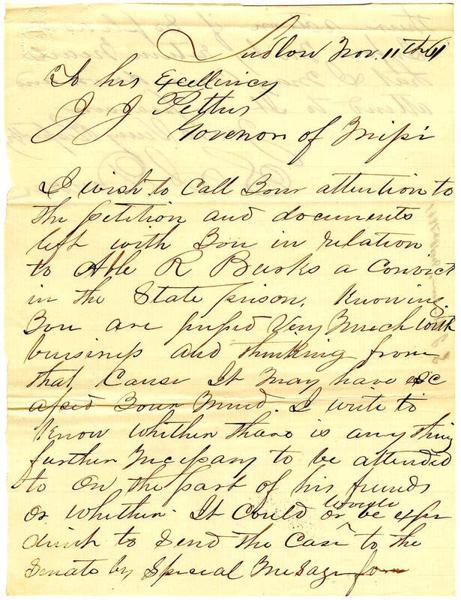 Ludlow Nov. 11th 61
To his Excellincy
J J Pettus
Govenor of Missi
I wish to Call Your attention to
the petition and documents
left with You in relation
to Able R Burks a Convict
in the State prison. Knowing
You are pushed Very Much with
buisiness and thinking from
that Cause It May have esc
aped Your Mind. I write to
Know whether there is any thing
further Necessary to be attended
to on the part of his friends
or whether It Could or would be expe
dient to Send the Case to the
Senate by Special Message